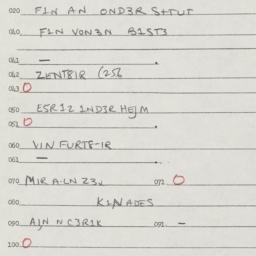 020 FIN AN OND3R S+TUT
040 FIN VON3N B1ST3
041 —
042 ZENT8IR (256
043 O
050 ESR12 IND3R HEJM
051 O
060 VIN FURT8-IR
061 —
070 MIR A-LN Z3V 072 O
080 KINADES
090 AIN N C3R1K 091 -
100 O